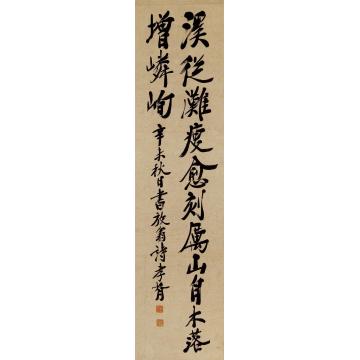 溪從灘瘦愈刻厲山自木落
增嶙峋
辛未秋日書放翁詩孝胥